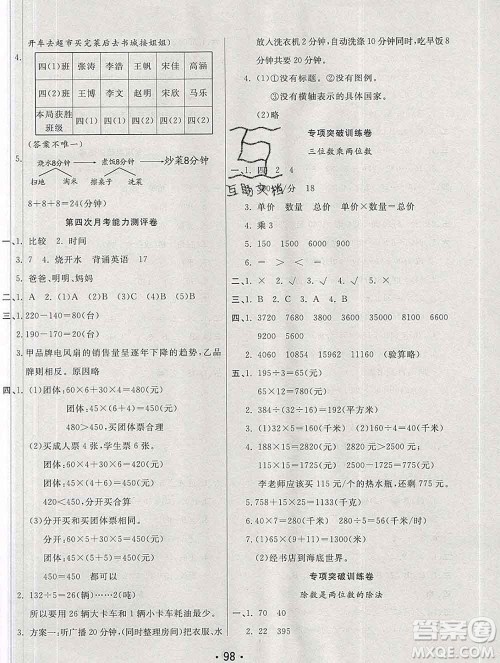 开车去超市买完菜后去书城接姐姐)
4. 四(1)班 张涛 李浩 王帆 宋佳 高福
四(2)班 王博 李文 赵明 宋欣 马乐
本局获胜班级
(答案不唯一)
5. 烧水8分钟 煮饭8分钟 炒菜8分钟
扫地 淘米 擦桌子 洗菜
8+8+8=24(分钟)
第四次月考能力测评卷
一、1. 比较 2. 时间
3. 7 4. 烧开水 背诵英语 17
5. 爸爸、明明、妈妈
二、1. A 2. B 3. A 4. B
三、1. 220-140=80(台)
2. 190-170=20(台)
3. 甲品牌电风扇的销售量呈逐年下降的趋势,乙品
牌则反之。原因略
四、1. (1)团体:60×6+30×4=480(元)
团体:45×(6+4)=450(元)
480>450 买团体票合适
(2)买成人票 4 张,学生票 6 张。
团体:60×4+30×6=420(元)
团体:45×(4+6)=450(元)
420<450 分开买合适
(3)分开买和买团体票相同。
60×5+30×5=450(元)
45×(5+5)=450(元)
450=450
2. 132÷5=26(辆)……2(吨)
所以要用 26 辆大卡车和 1 辆小卡车耗油最少。
3. 方案一:听广播 20 分钟,(同时整理房间、把衣服、水
放入洗衣机 2 分钟,自动洗涤 10 分钟)同时,吃早饭 8
分钟共要 20 分钟。
4. (1)①没有标题。②没有图例。
③没有横轴表示的具体国家。
(2)略
专项突破训练卷
三位数乘两位数
一、1. 四 2 4
分 18
3. 单价 数量 总价 单价×数量=总价
4. 乘3
5. 150 1500 900
二、1. × 2. × 3. ×
三、1. B 2. C 3. A
四、1. 630 3520 7680 7630 8000 6320
2. 4060 10857 41160 (验算略)
五、1. 195÷3=65(元)
65×12=780(元)
2. 384÷12=32(米)
(32+4)×12=432(平方米)
3. 384×(16÷4)=1536(平方米)
4. 188×15=2820(元) 2820>2800
115×15=1725(元) 1725<2800
李老师应该买 115 元的热水瓶,还剩 1075 元。
5. 758×(15-11)=3032(千克)
6. 240×(7-2)=1200(千米)
7. (1)(65+55)×9=1080(米)
(2)经书店到海底世界。
专项突破训练卷
除数是两位数的除法
一、1. 70 40
2. 22 87
98
互助文档
答案圈
MXQE.COM